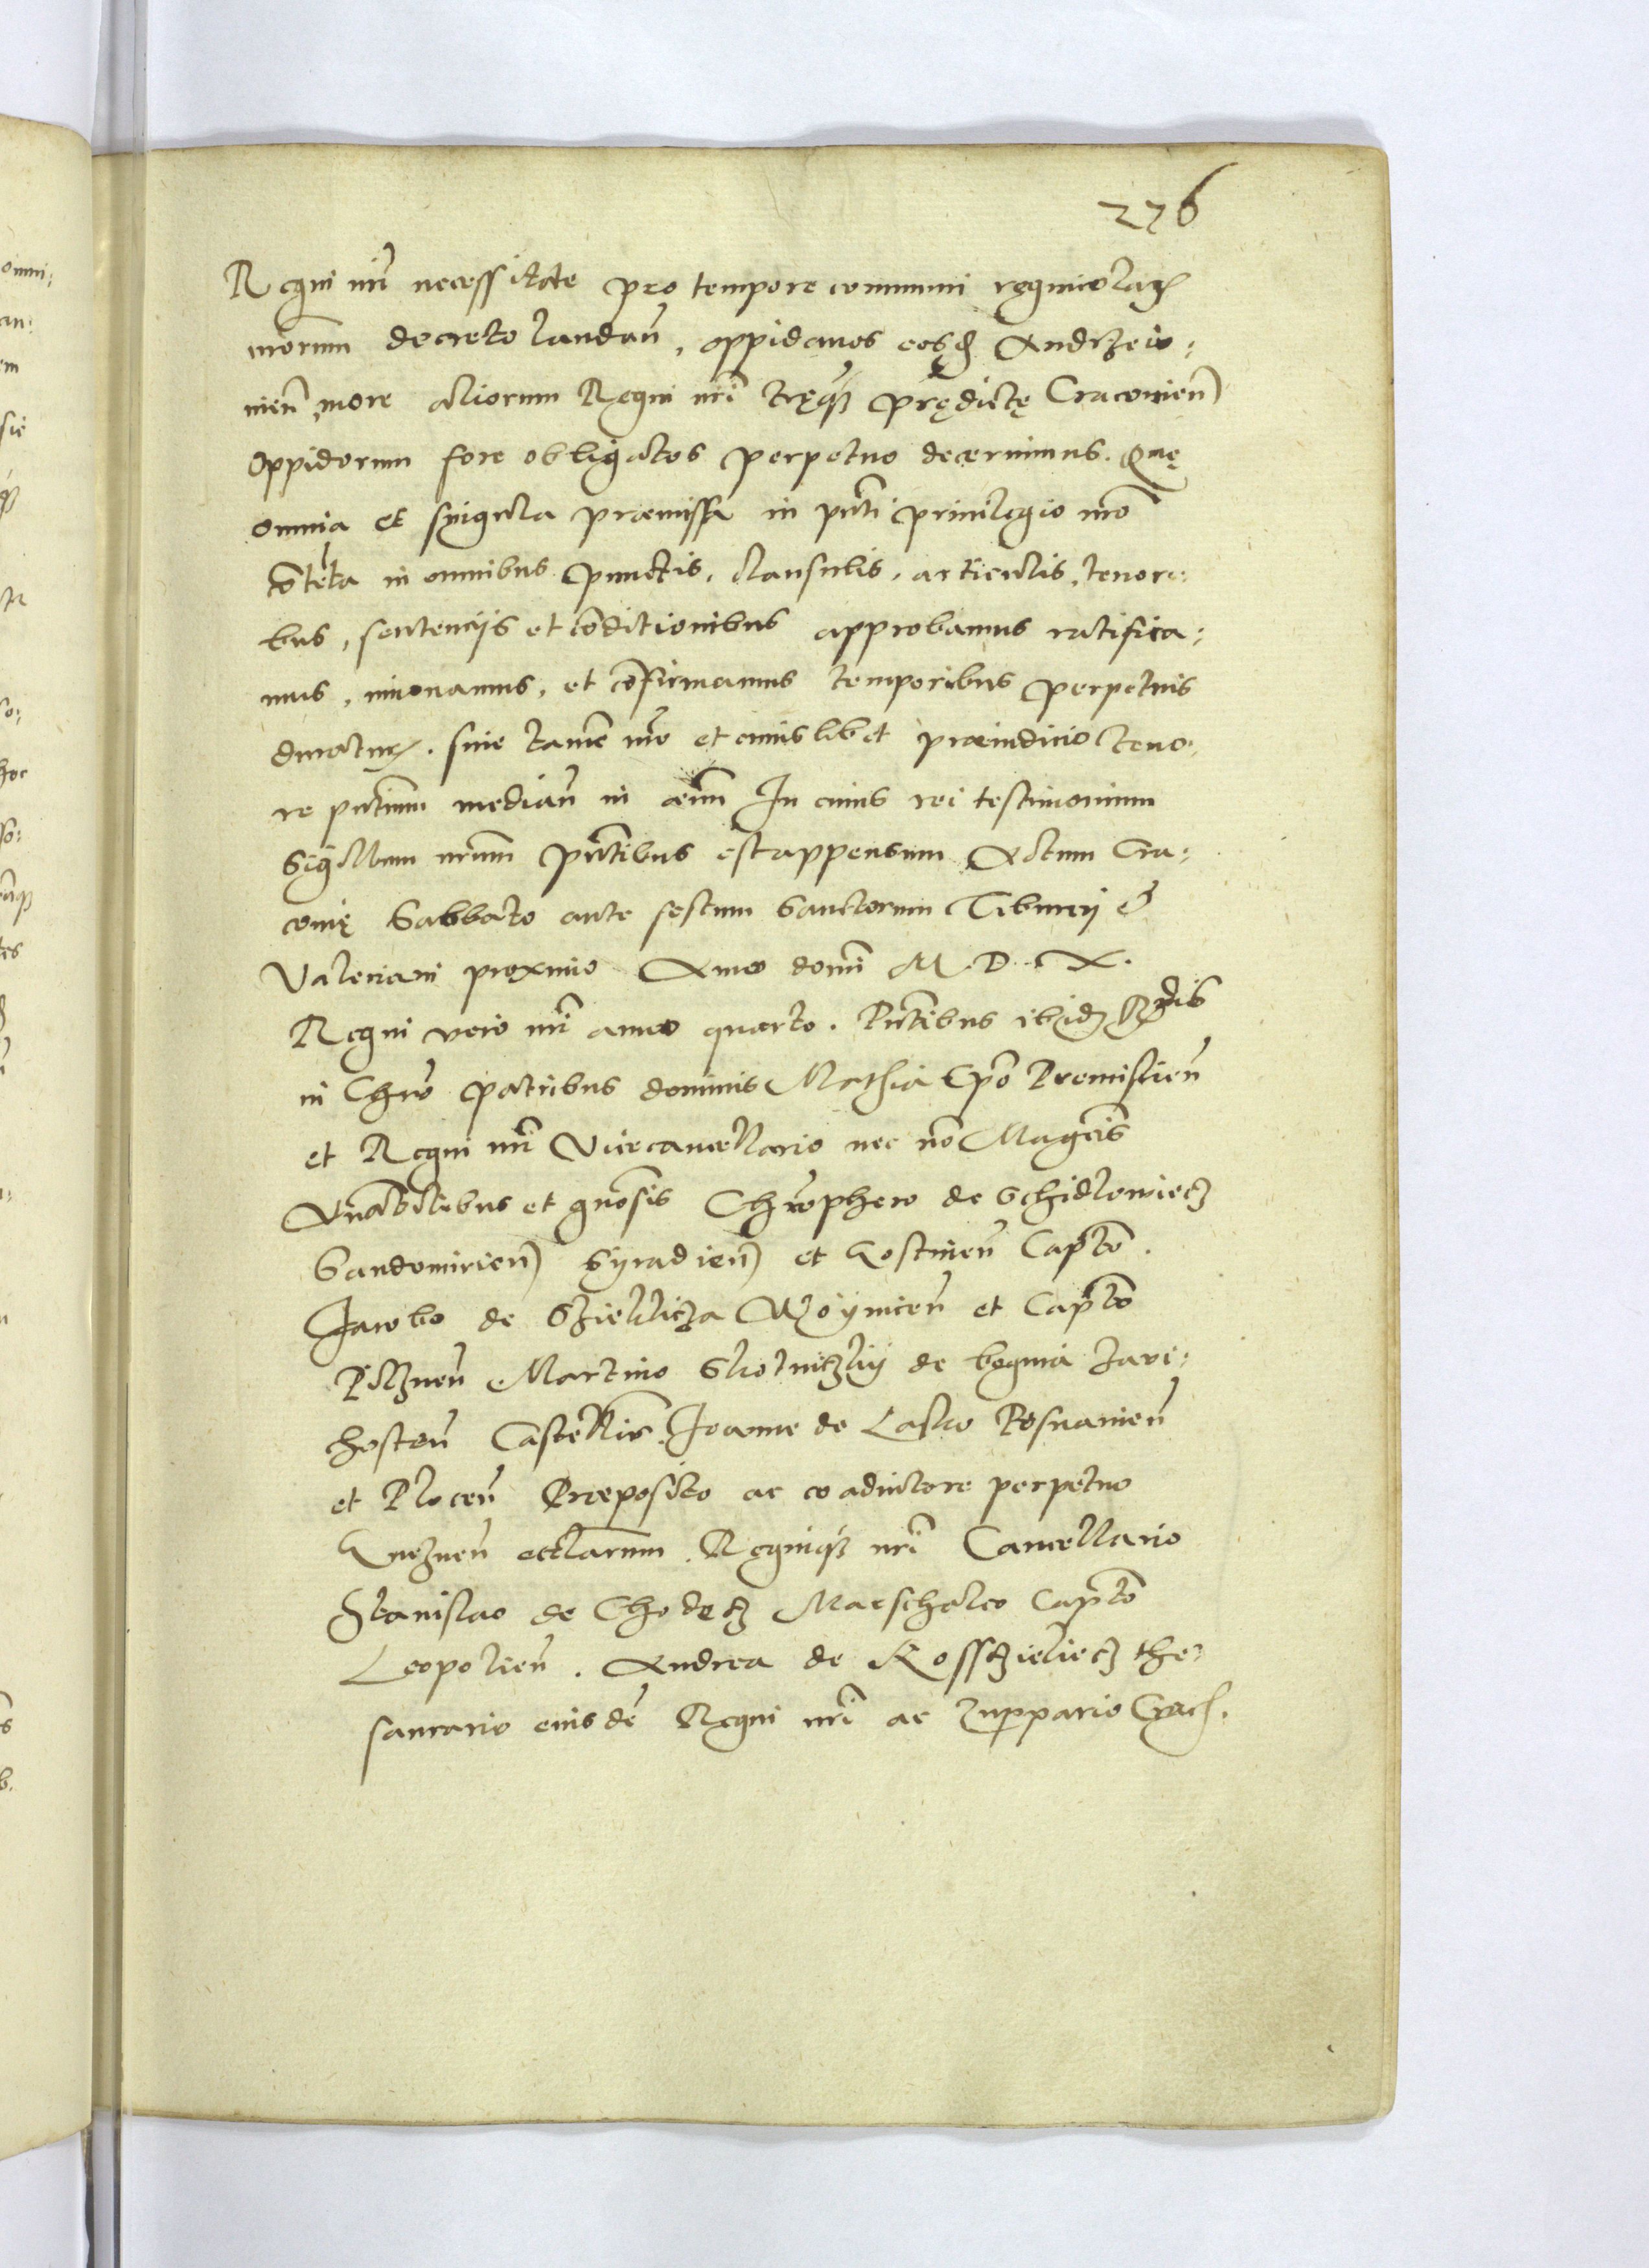 276
Regni nri necessitate pro tempore communi regnicolaꝝ
nrorum decreto laudan̄, oppidanos eosꝗ Andrzeio:
nien̄ more aliorum Regni nri tręqꝫ prędictę Cracovien̄
oppidorum fore obligatos perpetuo decernimus. Quę
omnia et singula præmissa in pñti privilegio nrō
cōtēta in omnibus punctis, clausulis, articulis, tenori:
bus, sentenciis et cōditionibus approbamus ratifica:
mus, innovamus, et cōfirmamus temporibus perpetuis
duratuꝝ. sine tamē nrō et cuiuslibet præiudicio teno:
re pñtium median̄ in ævum In cuius rei testimonium
Sigillum nrum pñtibus est appensum Actum Cra:
covię Sabbato ante festum Sanctorum Tiburcij &
Valeriani proximo Anno domi M. D. X.
Regni vero nri anno quarto. Pñtibus ibidꝫ Rndis
in Chro patribus dominis Mathia Epō Premislien̄
et Regni nri Vicecancellario nec nō Magcis
Vnabilibus et gnosis Chrophero de Schidlowiecz
Sandomirien̄ Syradien̄ et Gostinen̄ Capto.
Jacobo de Szieklicza Woynicen̄ et Capto
Pilznen̄ Martino Skotniczkij de bogoria Zavi:
chosten̄ Castellis. Joanne de Lasko Posnanien̄
et Plocen̄ Præposito ac coadiutore perpetuo
Gneznen̄ ecclarum. Regniqꝫ nri Cancellario
Stanislao de Chodecz Marschalco Capto
Leopolien̄. Andrea de Kossczieliecz the:
saurario eiusdē Regni nri ac Zuppario Crac.